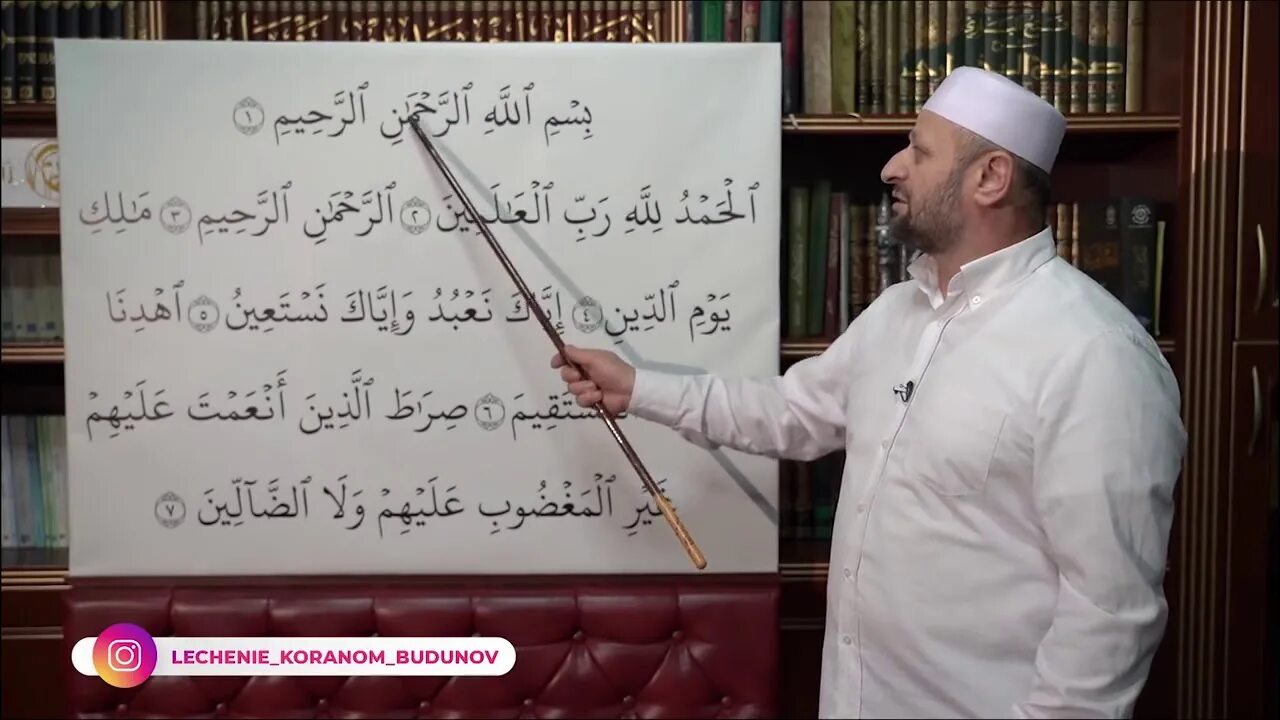 بِسْمِ ٱللَّهِ ٱلرَّحْمَٰنِ ٱلرَّحِيمِ ١
ٱلْحَمْدُ لِلَّهِ رَبِّ ٱلْعَٰلَمِينَ ٢ ٱلرَّحْمَٰنِ ٱلرَّحِيمِ ٣ مَٰلِكِ
يَوْمِ ٱلدِّينِ ٤ إِيَّاكَ نَعْبُدُ وَإِيَّاكَ نَسْتَعِينُ ٥ ٱهْدِنَا
٦ صِرَٰطَ ٱلَّذِينَ أَنْعَمْتَ عَلَيْهِمْ
غَيْرِ ٱلْمَغْضُوبِ عَلَيْهِمْ وَلَا ٱلضَّآلِّينَ ٧
LECHENIE_KORANOM_BUDUNOV